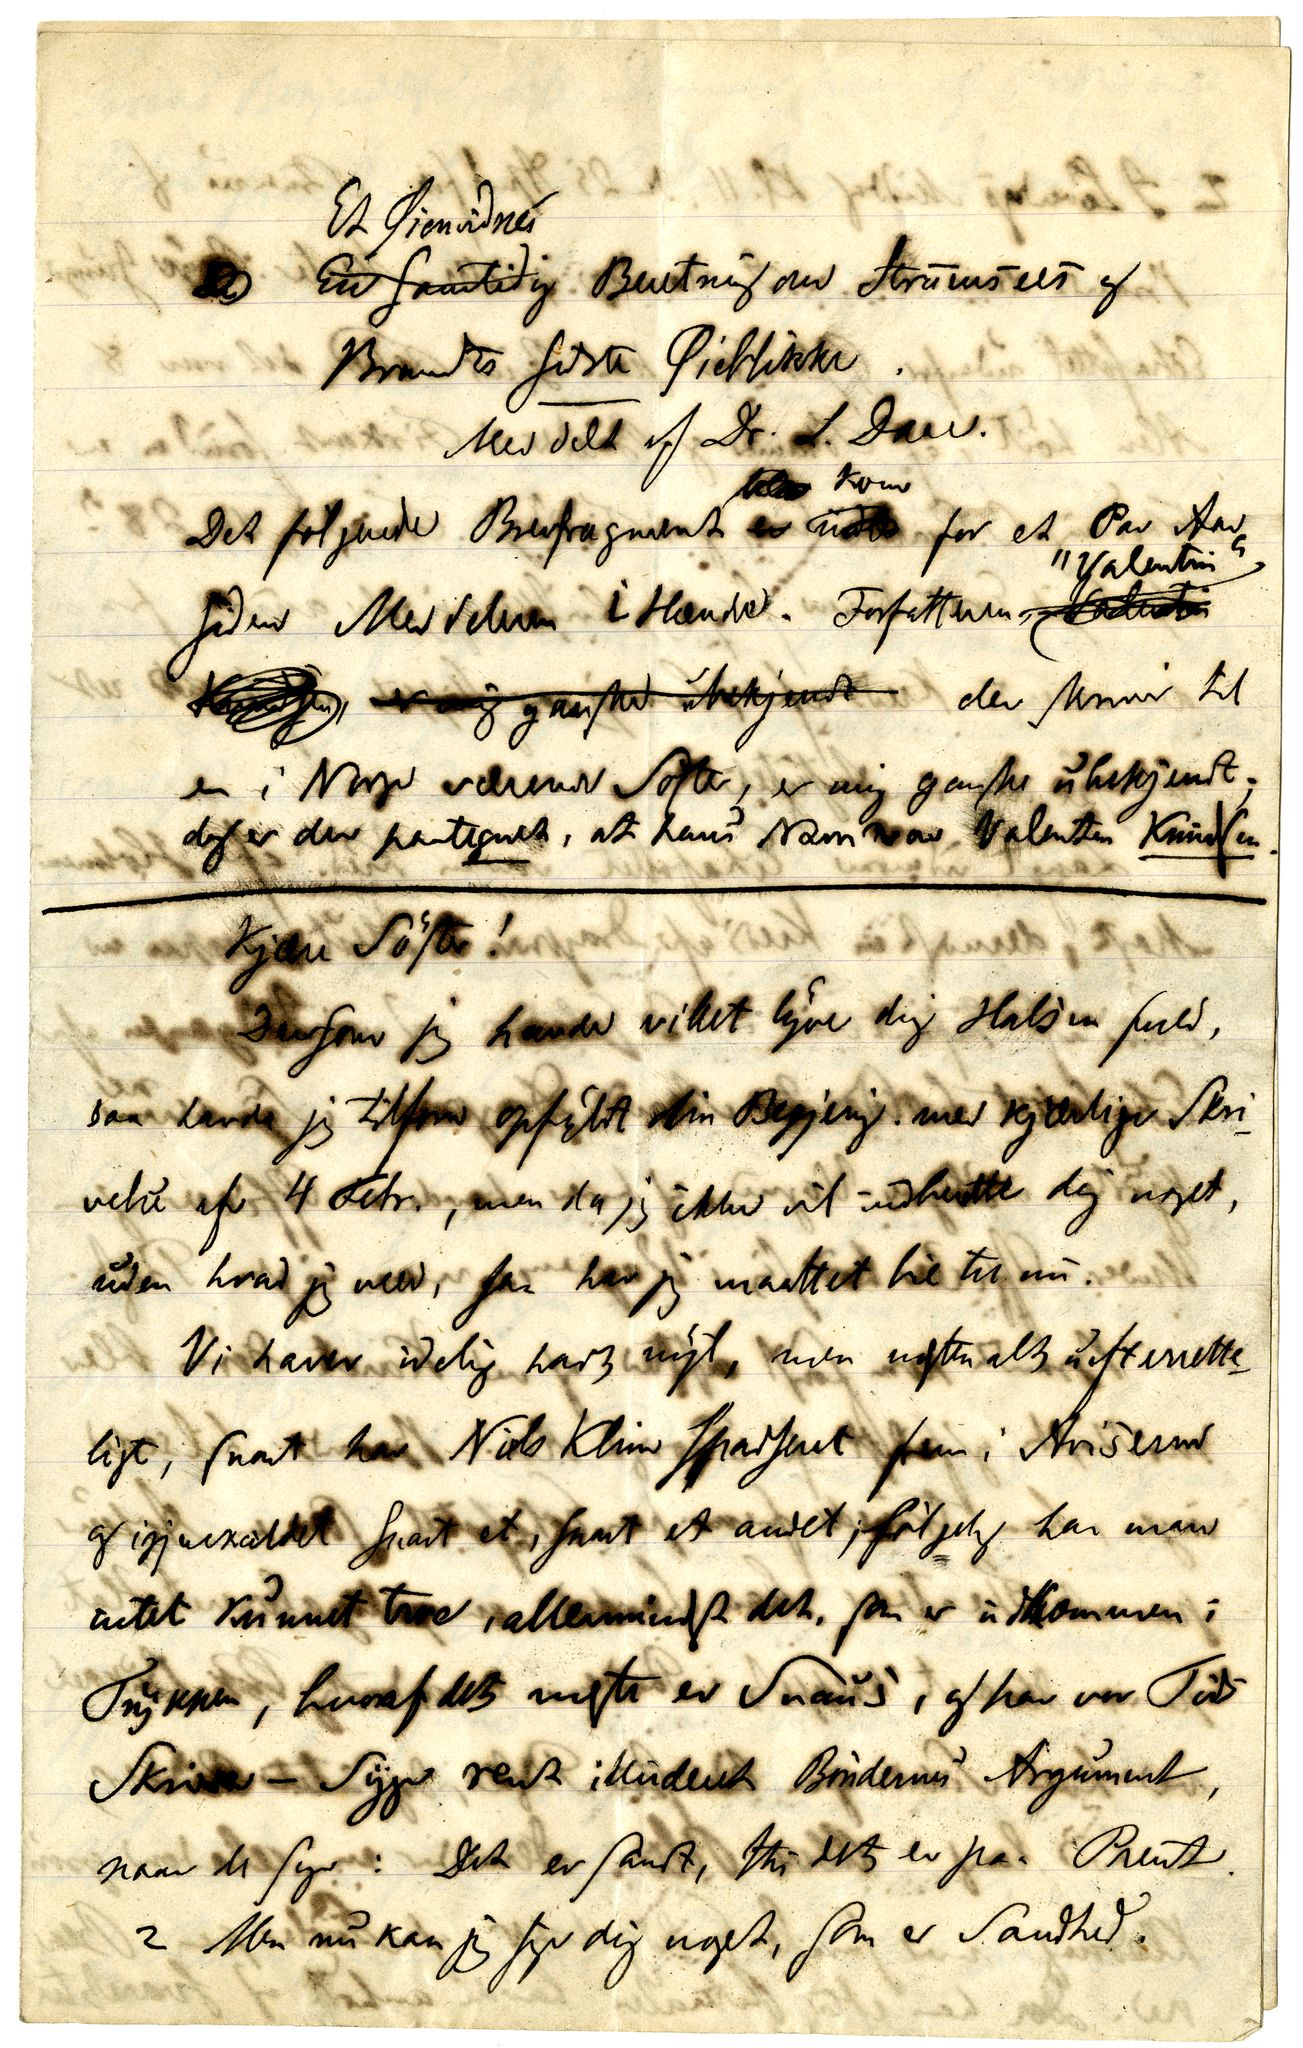 Et Øienvidnes
En samtidig Beretning om Struensees og
Brandts sidste Øieblikke.
Meddelt af Dr. L. Daae.
kom
Det følgende Brevfragment er for et Par Aar
"Valentin"
siden Meddeleren i Hænde. Forfatteren, Valentin
Knudsen, er mig ganske ubekjendt der skriver til
en i Norge værende Søster, er mig ganske ubekjendt;
dog er der paategnet, at hans Navn var Valentin Knudsen.
Kjære Söster!
Dersom jeg havde villet lyve dig Halsen fuld,
saa havde jeg tilforn opfyldt din Begjering med kjærlige Skri-
velse af 4 Febr., men da jeg ikke vil udhertte dig noget,
uden hvad jeg veed, saa har jeg maattet bie til nu.
Vi haver idelig havt nyt, men mesten alt uefterrette-
ligt, snart har Niels Klim spadseret frem i Aviserne
og igjenkaldet snart et, snart et andet; følgelig har man
intet kunnet troe, allermindst det, som er udkommen i
Trykken, hvoraf det meste er Snaus, og har vor Tids
Skrive-Syge rent illuderet Böndernes Argument,
naar de sige: Det er sandt, thi det er paa Prent.
2 Men nu kan jeg sige dig noget, som er Sandhed.